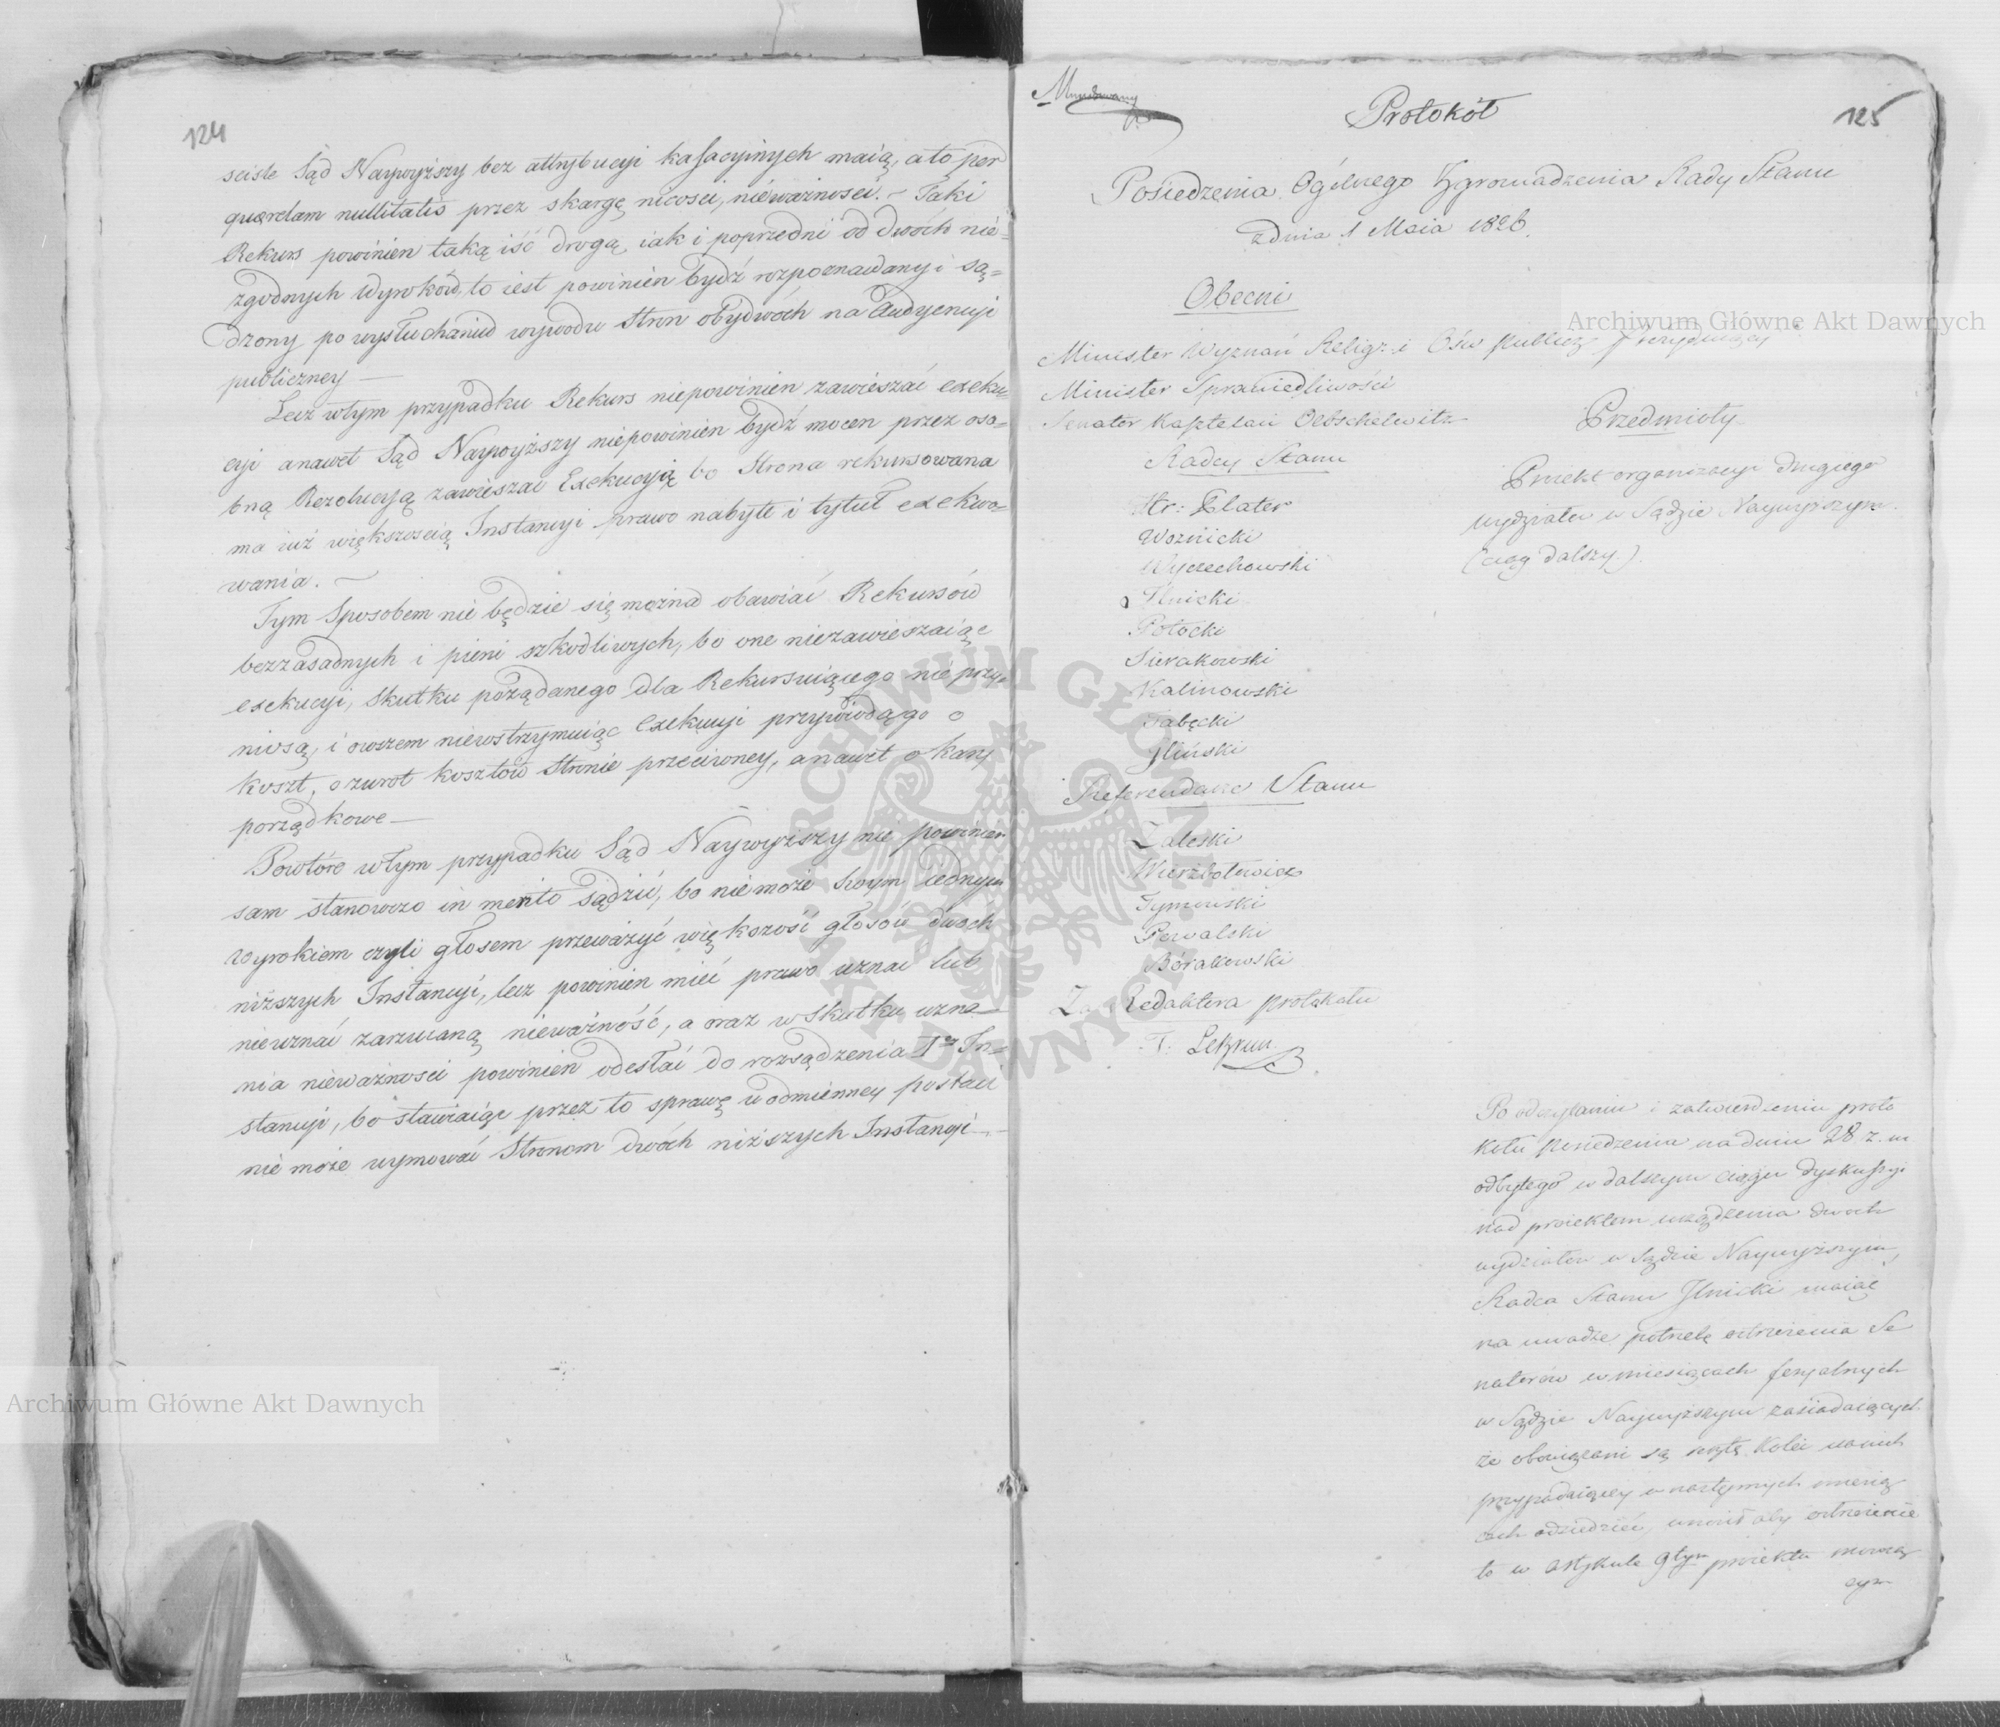 124
scisle Sąd Naywyższy bez attrybucyi kassacyinych maią, a to per
querelam nullitatis przez skargę nicosci, nieważnosci. – Taki
Rekurs powinien taką iść drogą iak i poprzedni od dwóch nie=
zgodnych Wyroków, to iest powinien bydź rozpoznawany i są=
dzony po wysłuchaniu wywodu Stron obydwóch na Audyencyi
publiczney —
Lecz wtym przypadku Rekurs niepowinien zawieszać exeku
cyi anawet Sąd Naywyższy niepowinien bydź mocen przez oso=
bną Rezolucyą zawieszać Exekucyię bo Strona rekursowana
ma iuż większoscią Instancyi prawo nabyte i tytuł exekwo=
wania. —
Tym Sposobem nie będzie się można obawiać Rekursów
bezzasadnych i pieni szkodliwych, bo one niezawieszaiąc
exekucyi, skutku pożądanego dla Rekursuiącego nie przy=
niosą, i owszem niewstrzymuiąc Exekucyi przywiodą go o
koszt, o zwrot kosztów Stronie przeciwney, a nawet o kary
porządkowe —
Powtóre wtym przypadku Sąd Naywyższy nie powinien
sam stanowczo in merito sądzić, bo nie może swym iednym
wyrokiem czyli głosem przeważyć większość głosów dwóch
niższych Instancyi, lecz powinien mieć prawo uznać lub
nieuznać zarzucaną nieważność, a oraz w skutku uzna=
nia nieważnosci powinien odesłać do rozsądzenia 1ey In=
stancyi, bo stawiaiąc przez to sprawę w odmienney postaci
nie może uymować Stronom dwóch niższych Instancyi —
Mundowany
Protokół
125
Posiedzenia Ogólnego Zgromadzenia Rady Stanu
z dnia 1 Maia 1826.
Obecni
Minister Wyznań Relig: i Ośw. Publicz. Prezyduiący
Minister Sprawiedliwości
Senator Kasztelan Oebschelwitz
Przedmioty
Radcy Stanu
Hr: Plater
Woźnicki
Wyczechowski
Ilnicki
Potocki
Sierakowski
Kalinowski
Fabęcki
Gliński
Proiekt organizacyi drugiego
wydziału w Sądzie Naywyższym.
(ciąg dalszy).
Referendarze Stanu
Zaleski
Wierzbołowicz
Tymowski
Bórakowski
Za Redaktora protokołu
Po odczytaniu i zatwierdzeniu proto
kołu posiedzenia na dniu 28 z. m
odbytego w dalszym ciągu dyskussyi
nad proiektem urządzenia dwóch
wydziałów w Sądzie Naywyższym,
Radca Stanu Ilnicki maiąc
na uwadze potrzebę Se
natorów w miesiącach feryalnych
w Sądzie Naywyższym zasiadaiących
że obowiązani są
przypadaiącey w następnych miesią
cach odsiedzieć, wnosił aby
to w artykule 9tym proiektu mówią
cym
Archiwum Główne Akt Dawnych
Archiwum Główne Akt Dawnych
ARCHIWUM GŁÓWNE AKT DAWNYCH